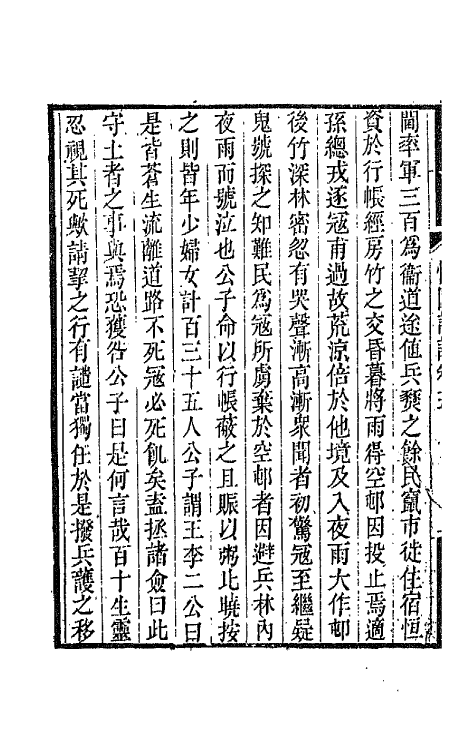 閫率軍三百為衞道途値兵燹之餘民竄市徙住宿恒
資於行帳經房竹之交昏暮將雨得空邨因投止焉適
孫總戎逐寇甫過故荒涼倍於他境及入夜雨大作邨
後竹深林密忽有哭聲漸高漸衆聞者初驚寇至繼疑
鬼號探之知難民為寇所虜棄於空邨者因避兵林內
夜雨而號泣也公子命以行帳蔽之且賑以粥比曉按
之則皆年少婦女計百三十五人公子謂王李二公曰
是皆蒼生流離道路不死寇必死飢矣盍拯諸僉曰此
守土者之事與焉恐獲咎公子曰是何言哉百十生靈
忍視其死歟請挈之行有譴當獨任於是撥兵護之移